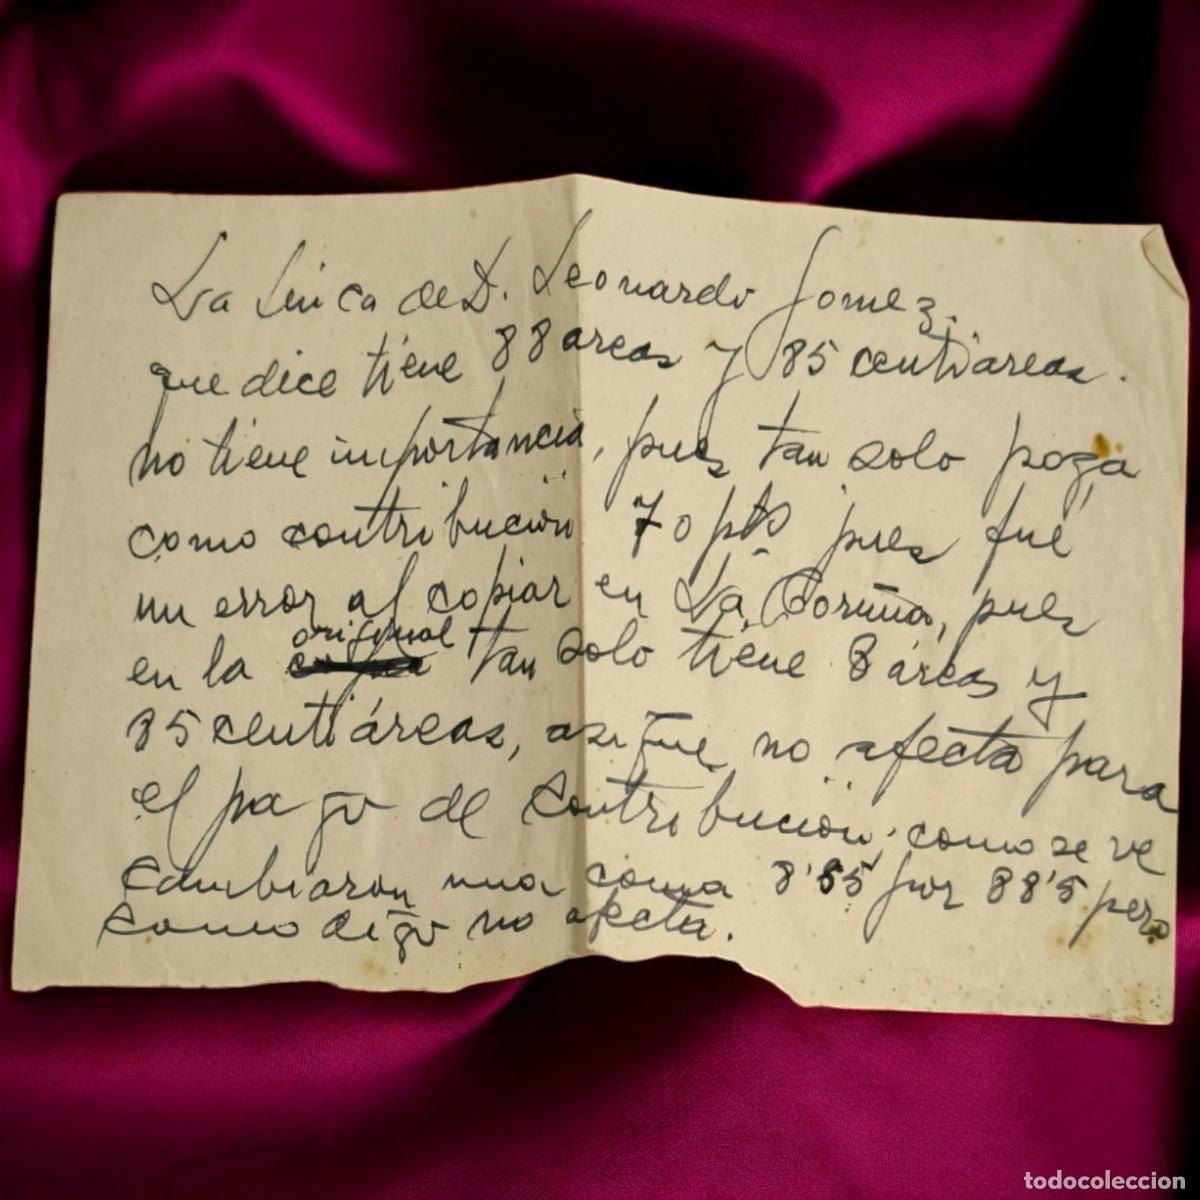 La finca de D. Leonardo Gomez.
que dice tiene 88 areas y 85 centiareas.
no tiene importancia, pues tan solo paga
como contribución 70 pts pues fué
un error al copiar en La Coruña, pues
en la original tan solo tiene 8 áreas y
85 centiáreas, asi que no afecta para
el pago de contribución. como se ve
cambiaron una coma 8'85 por 88'5 pero
como digo no afecta.
todocoleccion